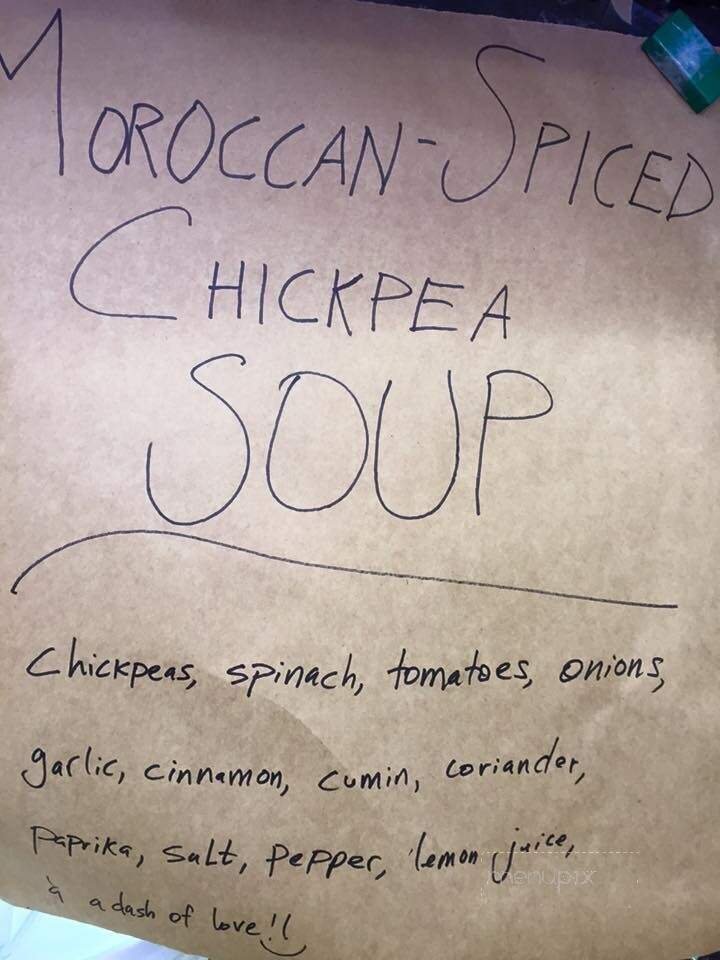 MOROCCAN-SPICED
CHICKPEA
SOUP
Chickpeas, spinach, tomatoes, onions,
garlic, cinnamon, cumin, coriander,
Paprika, salt, pepper, lemon juice,
menupix
a dash of love!!